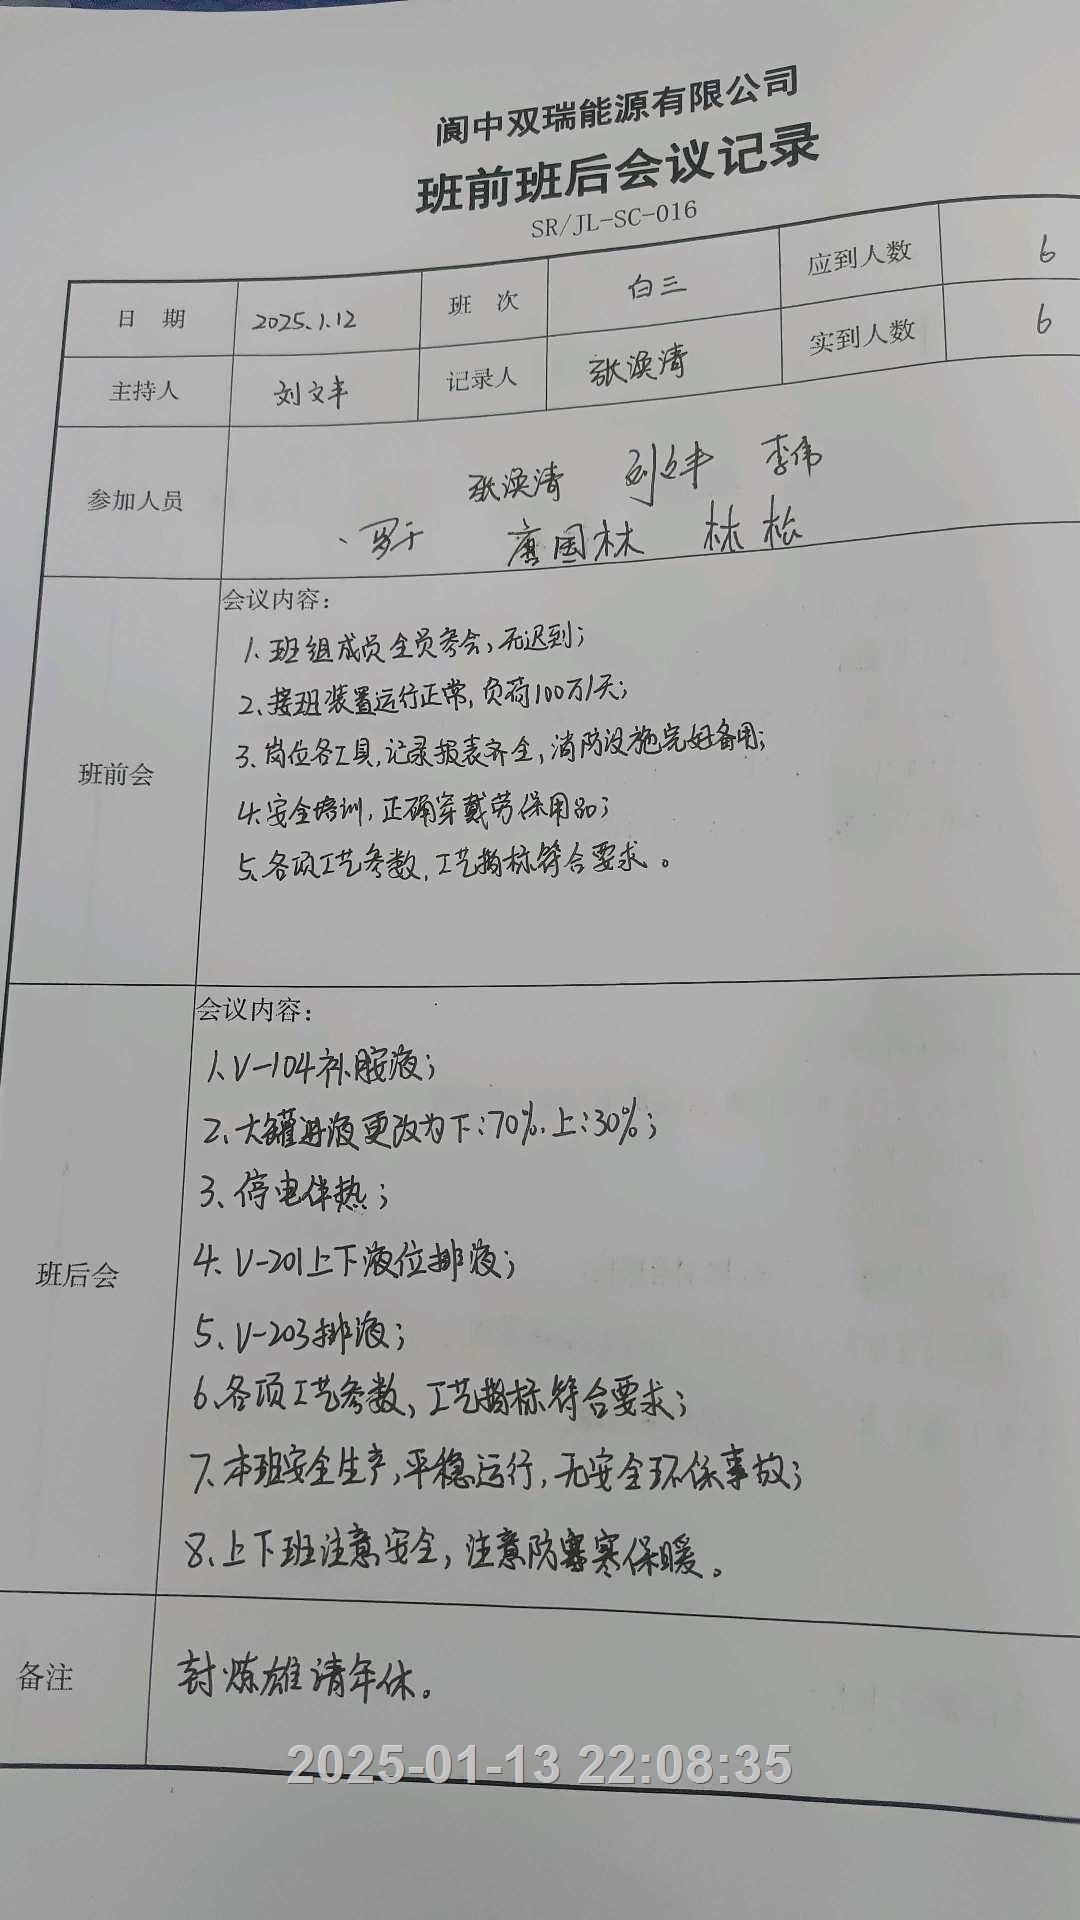 阆中双瑞能源有限公司
班前班后会议记录
SR/JL-SC-016
日 期 2025.1.12 班 次 白三 应到人数 6
主持人 刘文丰 记录人 张涣清 实到人数 6
参加人员 张涣清 刘文丰 李伟
罗于 唐国林 林松
班前会
会议内容：
1、班组成员全员参会，无迟到；
2、接班装置运行正常，负荷100万/天；
3、岗位各工具，记录报表齐全，消防设施完好备用；
4、安全培训，正确穿戴劳保用品；
5、各项工艺参数，工艺指标符合要求。
班后会
会议内容：
1、V-104补胺液；
2、大罐进液更改为下：70%.上：30%；
3、停电伴热；
4、V-201上下液位排液；
5、V-203排液；
6、各项工艺参数，工艺指标符合要求；
7、本班安全生产，平稳运行，无安全环保事故；
8、上下班注意安全，注意防寒保暖。
备注 封炼雄请年休。
2025-01-13 22:08:35